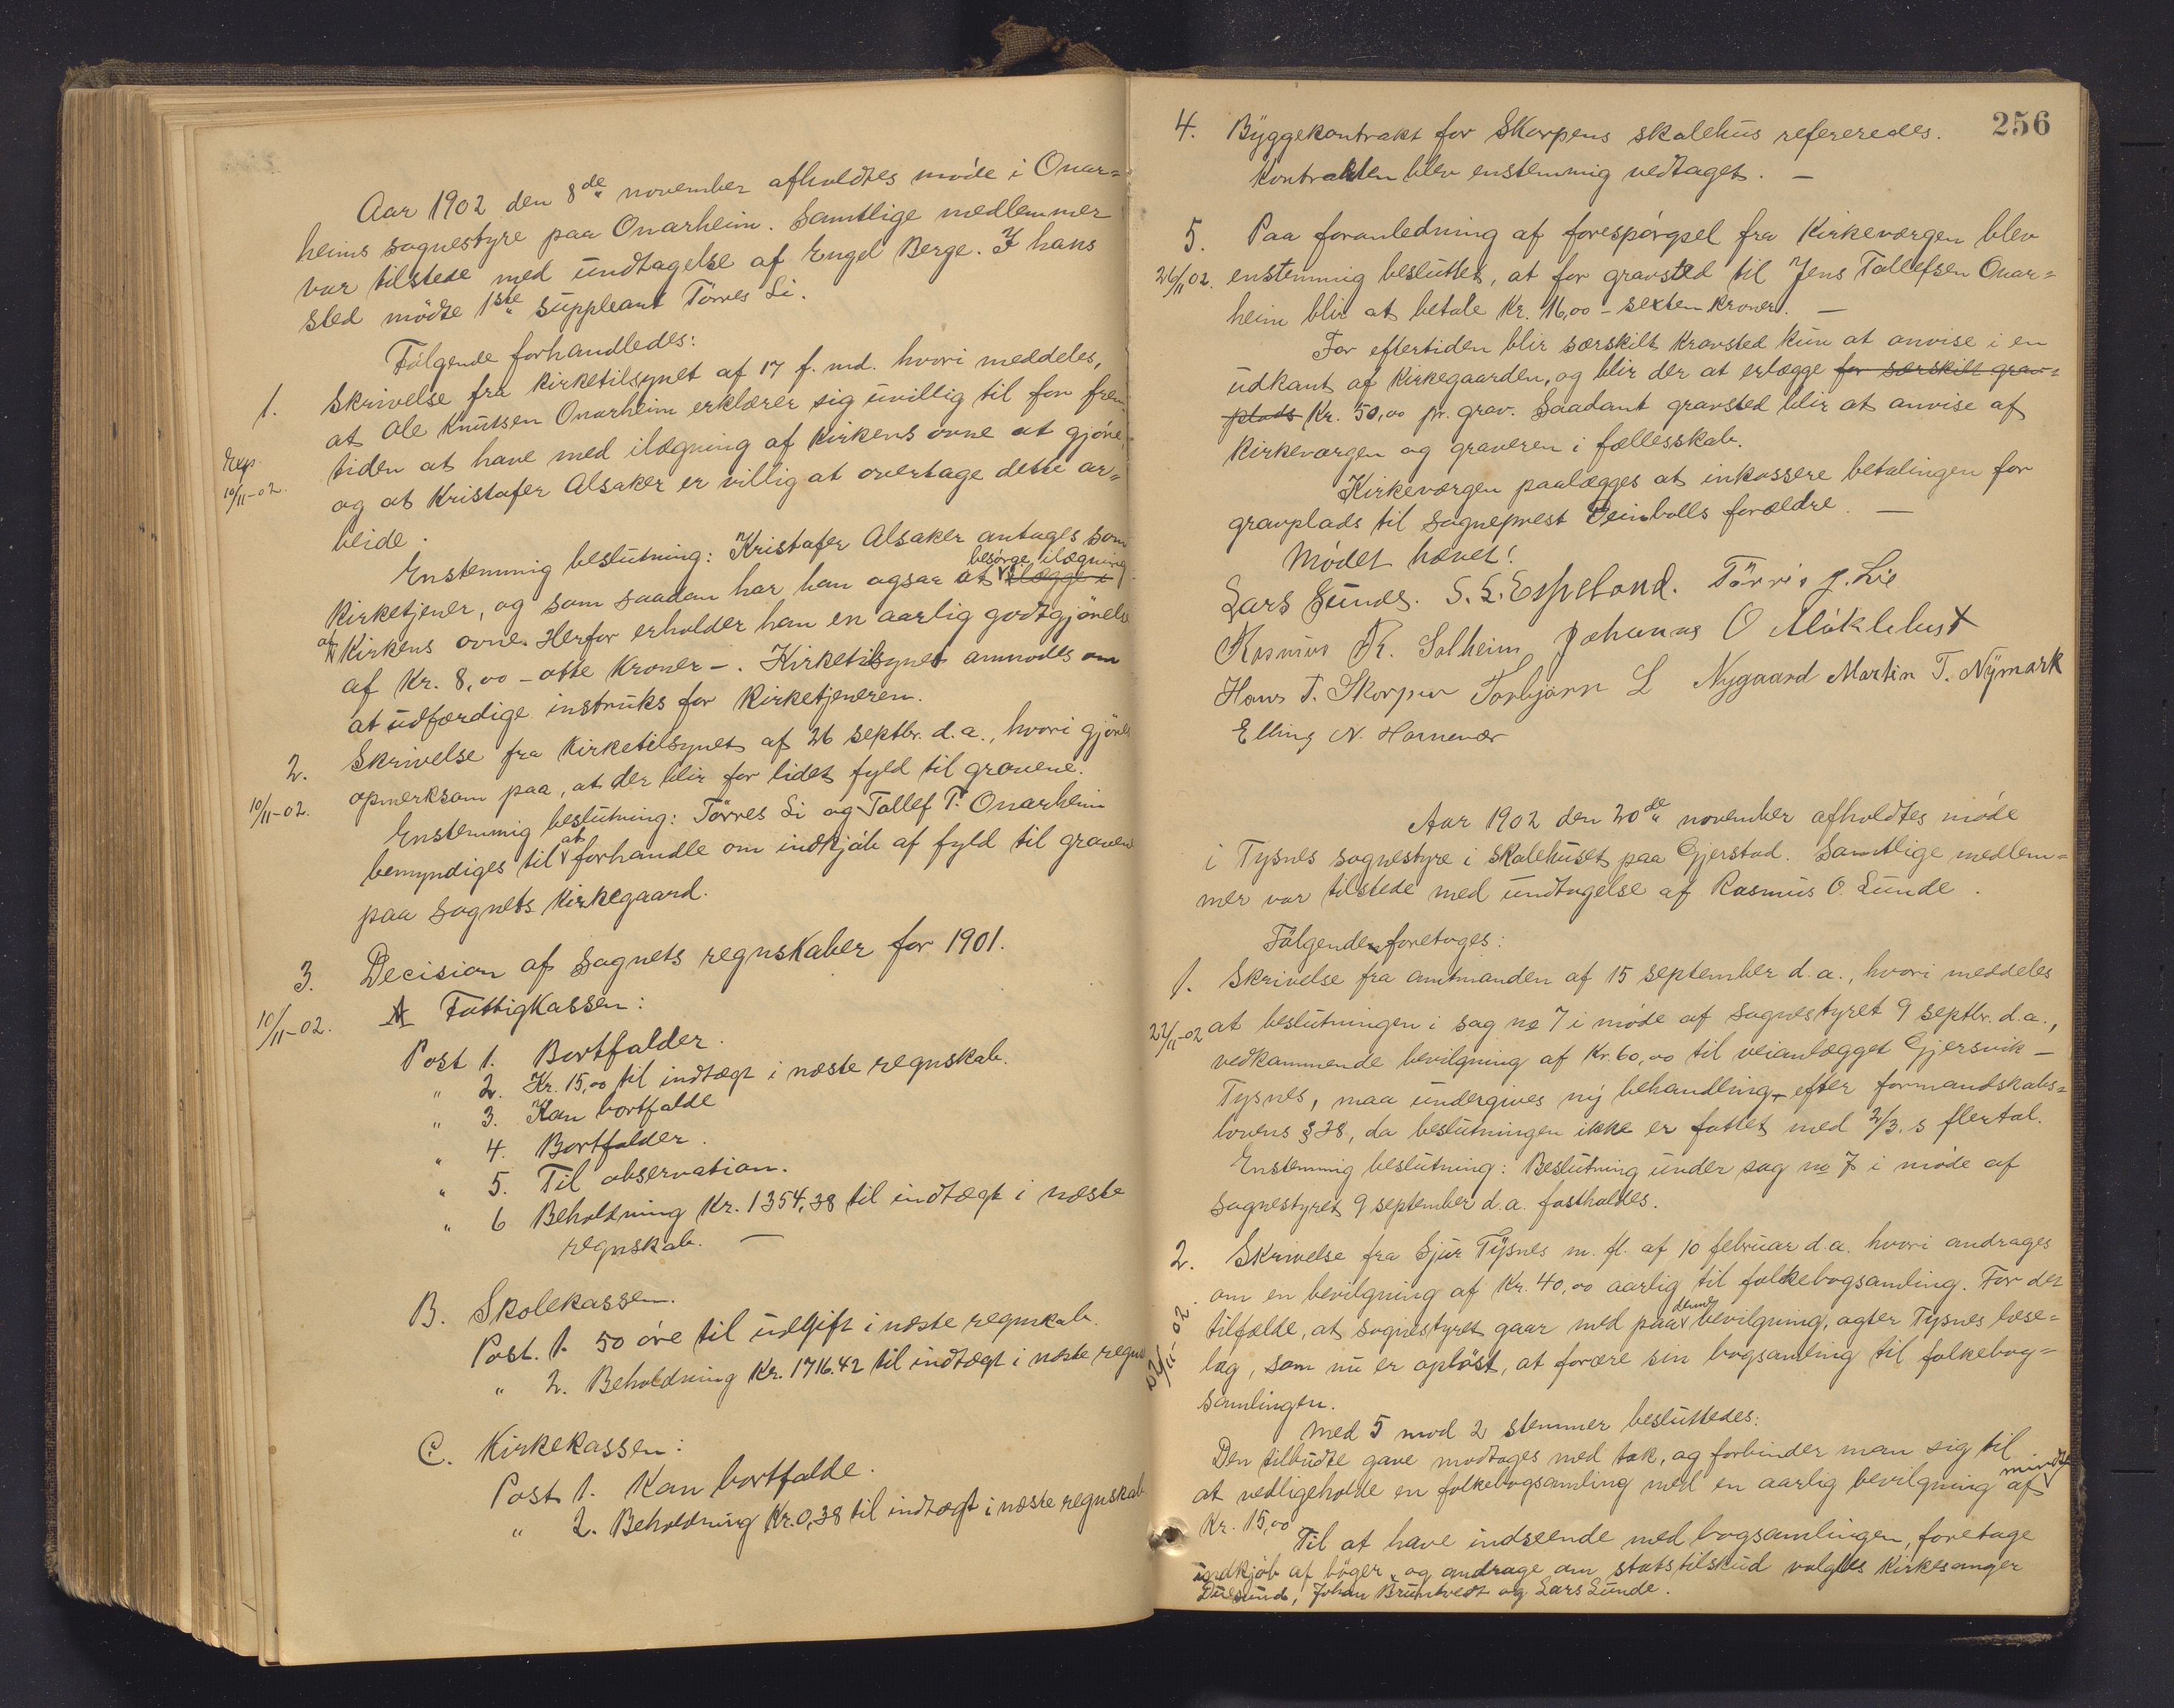 Aar 1902 den 8de november afholdtes møde i Onar=
heims sognestyre paa Onarheim. Samtlige medlemmer
var tilstede med undtagelse af Engel Berge. I hans
sted mødte 1ste suppleant Törres Li.
Følgende forhandledes:
1. Skrivelse fra kirketilsynet af 17 f. md. hvori meddeles,
at Ole Knutsen Onarheim erklærer sig uvillig til for frem
Exp. 10/11-02. tiden at have med ilægning af kirkens ovne at gjøre,
og at Kristofer Alsaker er villig at overtage dette ar=
beide.
Enstemmig beslutning: Kristofer Alsaker antages som
kirketjener, og som saadan har han ogsaa at besørge ilægning ilægge i
af Kirkens ovne. Herfor erholder han en aarlig godtgjørelse
af Kr. 8,00 - otte Kroner -. Kirketilsynet anmodes om
at udfærdige instruks for Kirketjeneren.
2. Skrivelse fra Kirketilsynet af 26 septbr. d.a., hvori gjøres
10/11-02. opmerksom paa, at der blir for lidet fyld til gravene.
Enstemmig beslutning: Törres Li og Tollef T. Onarheim
bemyndiges til at forhandle om indkjøb af fyld til gravene
paa Sognets Kirkegaard.
3. Decision af Sognets regnskaber for 1901.
10/11-02. A Fattigkassen:
Post 1. Bortfalder.
" 2. Kr. 15,00 til indtægt i næste regnskab.
" 3. Kan bortfalde
" 4. Bortfalder.
" 5. Til observation.
" 6 Beholdning Kr. 1354,38 til indtægt i næste
regnskab. —
B. Skolekassen.
Post. 1. 50 øre til udgift i næste regnskab.
" 2. Beholdning Kr. 1716.42 til indtægt i næste regns
C. Kirkekassen:
Post 1. Kan bortfalde.
" 2. Beholdning Kr. 0,38 til indtægt i næste regnskab
256
4. Byggekontrakt for Skorpens skolehus refereredes.
Kontrakten blev enstemmig vedtaget. —
5. Paa foranledning af forespørgsel fra Kirkeværgen blev
26/11 02. enstemmig besluttet, at for gravsted til Jens Tollefsen Onar=
heim blir at betale Kr. 16,00 - sexten Kroner. —
For eftertiden blir særskilt Kravsted kun at anvise i en
udkant af Kirkegaarden, og blir der at erlægge for særskilt grav=
plads Kr. 50,00 pr. grav. Saadant gravsted blir at anvise af
Kirkeværgen og graveren i fællesskab.
Kirkeværgen paalægges at inkassere betalingen for
gravplads til Sogneprest Veinholls forældre. —
Mødet hævet!
Lars Sunde. S. L. Espeland. Törris J. Lie
Rasmus R. Solheim Johannes O Möklebust
Hans T. Skorpen Torbjørn L Nygaard Martin T. Nymark
Elling N. Hornenær
Aar 1902 den 20de november afholdtes møde
i Tysnes sognestyre i skolehuset paa Gjerstad. Samtlige medlem=
mer var tilstede med undtagelse af Rasmus O. Lunde.
Følgende foretoges:
1. Skrivelse fra amtmanden af 15 september d.a., hvori meddeles
22/11-02 at beslutningen i sag no 7 i møde af Sognestyret 9 septbr. d.a.,
vedkommende bevilgning af Kr. 60,00 til veianlægget Gjersvik -
Tysnes, maa undergives ny behandling efter formandskabs=
lovens § 28, da beslutningen ikke er fattet med 2/3.s flertal.
Enstemmig beslutning: Beslutning under sag no 7 i møde af
Sognestyret 9 september d.a. fastholdes.
2. Skrivelse fra Sjur Tysnes m. fl. af 10 februar d.a. hvori andrages
om en bevilgning af Kr. 40,00 aarlig til folkebogsamling. For det
22/11-02. tilfælde, at sognestyret gaar med paa denne bevilgning, agter Tysnes læse=
lag, som nu er opløst, at forære sin bogsamling til folkebog=
samlingen.
Med 5 mod 2 stemmer besluttedes:
Den tilbudte gave modtages med tak, og forbinder man sig til
at vedligeholde en folkebogsamling med en aarlig bevilgning af mindst
Kr. 15,00
Til at have indseende med bogsamlingen, foretage
indkjøb af bøger, og andrage om statstilskud valgtes Kirkesanger
Duesund, Johan Bruntvedt og Lars Lunde.